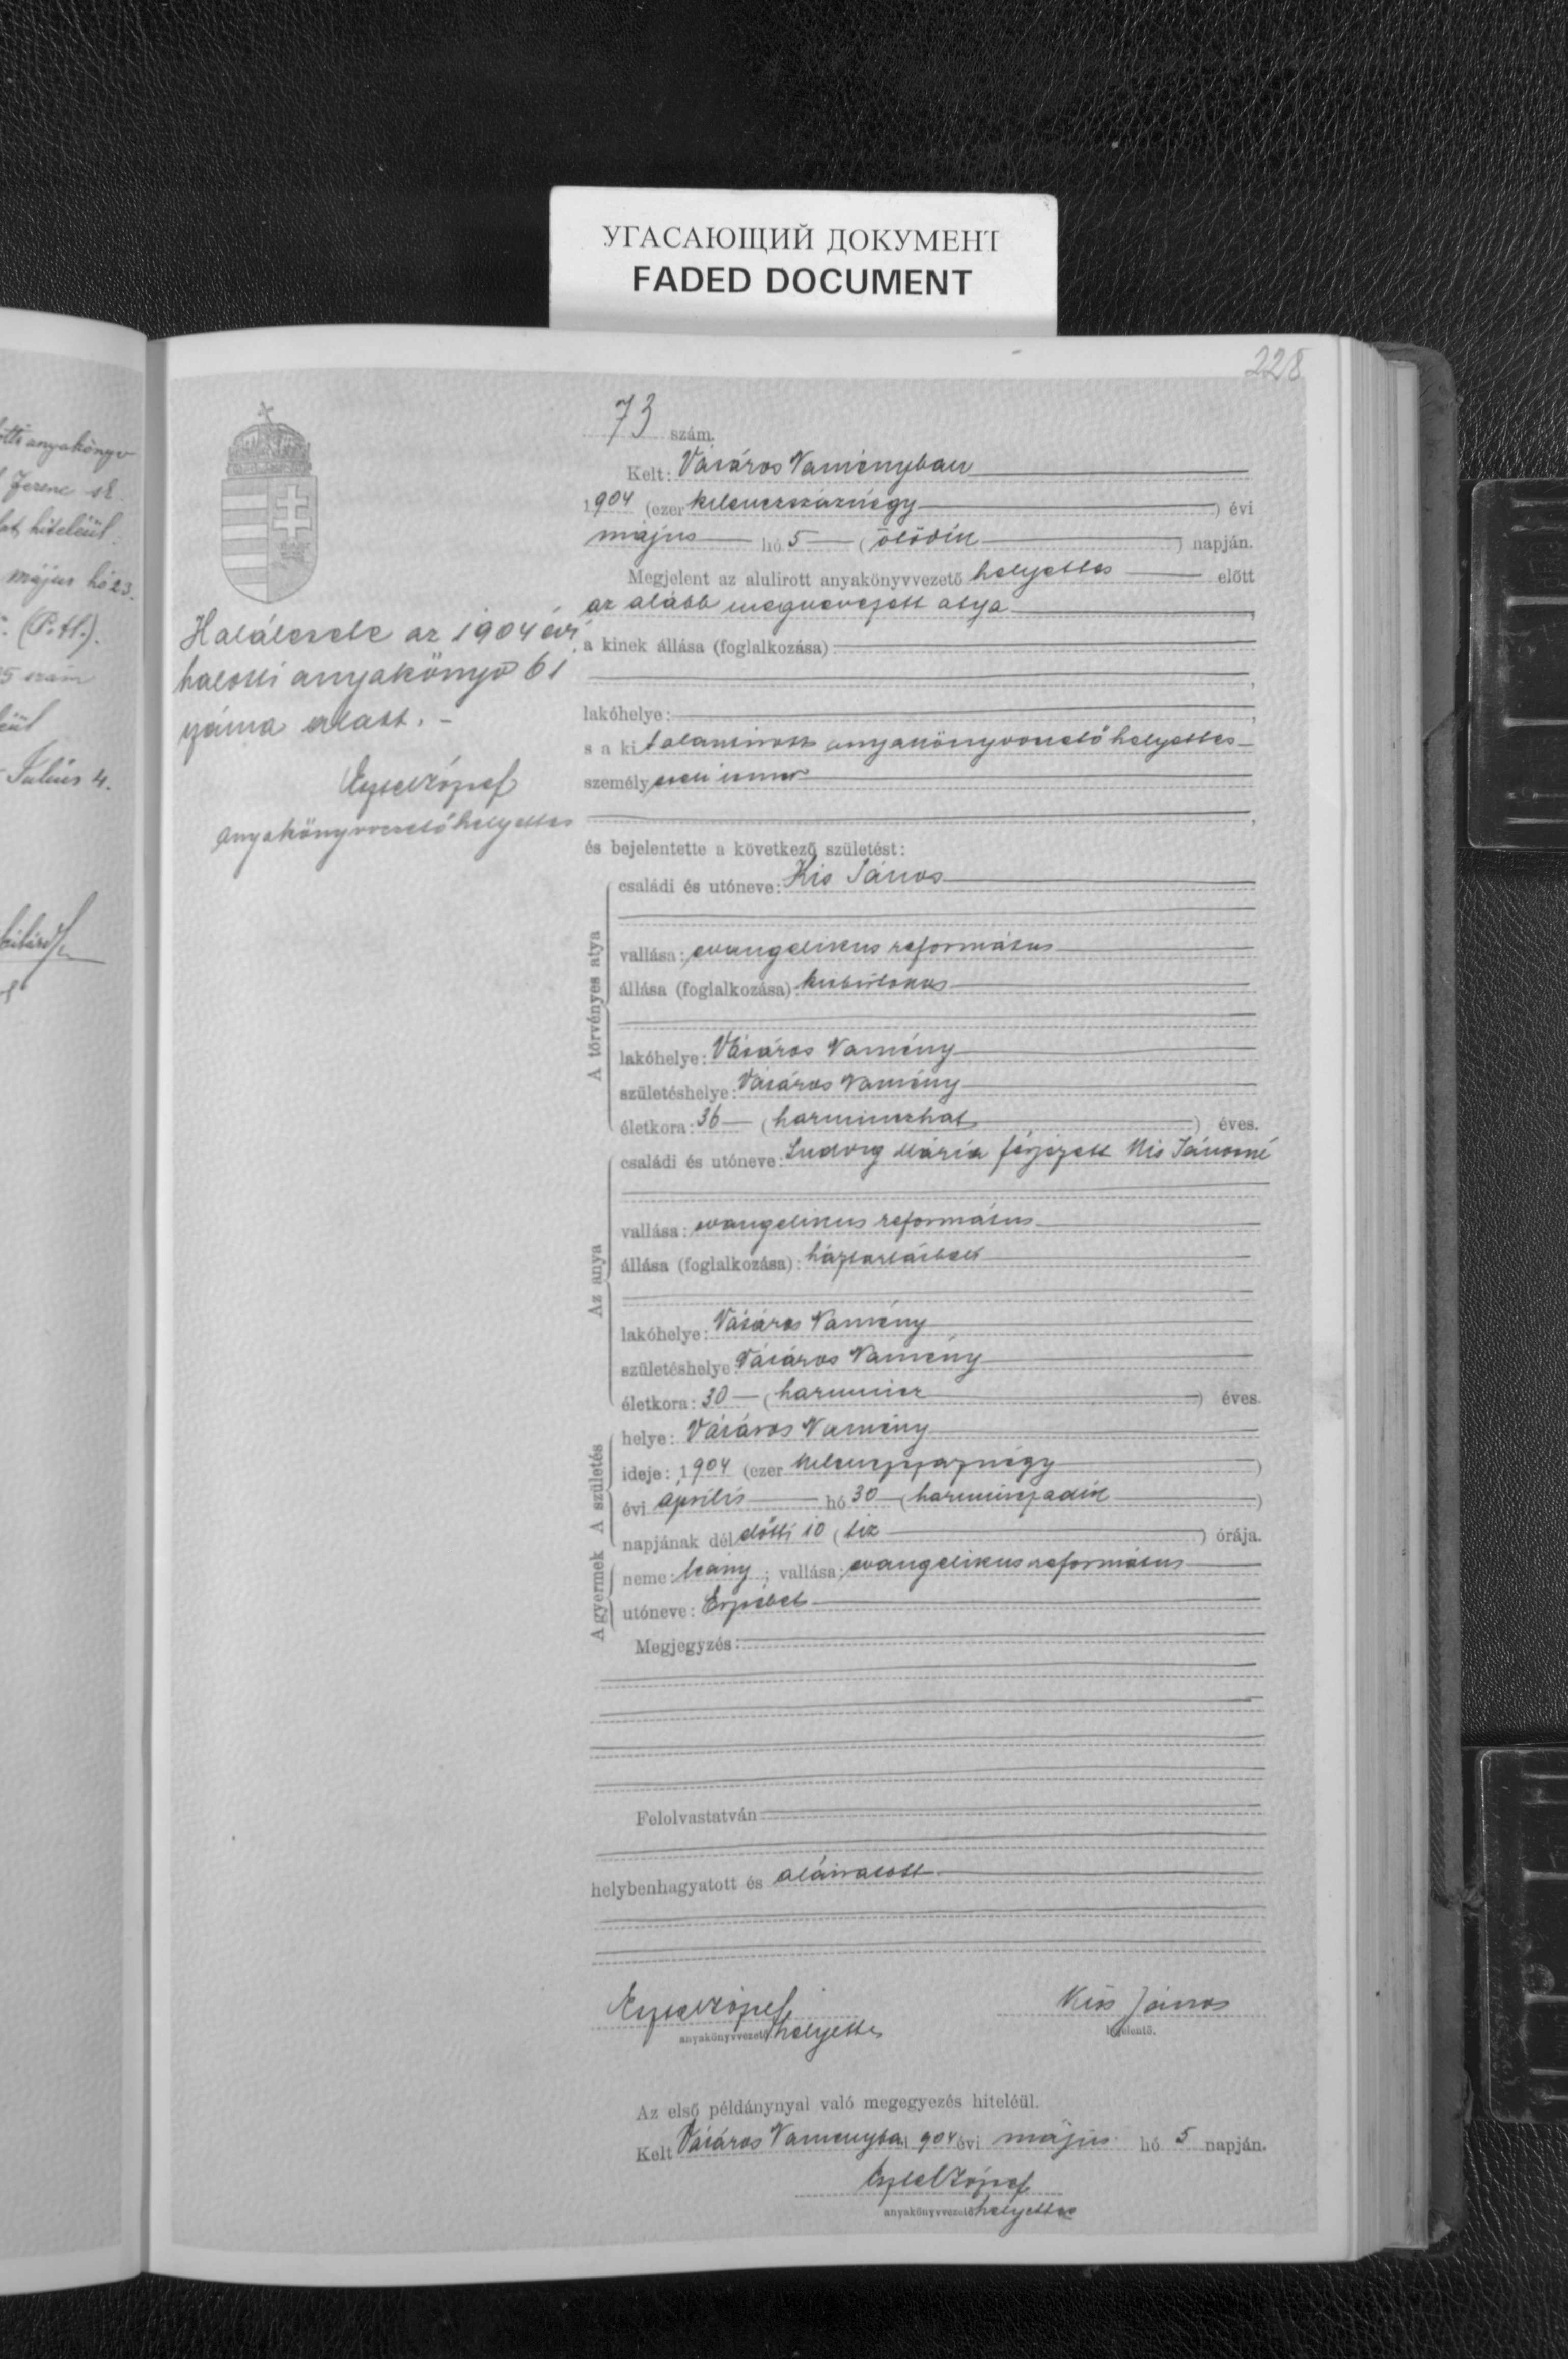 УГАСАЮЩИЙ ДОКУМЕНТ
FADED DOCUMENT
228
anyakönyv
Ferenc
hiteléül.
május hó 23.
(P.H.).
5 szám
Július 4.
Haláleset az 1904 évi
halotti anyakönyv 61
száma alatt. -
József
anyakönyvvezető helyettes
73 szám.
Kelt: Vásáros Naményban
1904 (ezer kilencszáznégy) évi
május hó 5 (ötödik) napján.
Megjelent az alulirott anyakönyvvezető helyettes előtt
az alább megnevezett atya,
a kinek állása (foglalkozása):
lakóhelye:
s a kit alantirott anyakönyvvezető helyettes
személyesen ismer
és bejelentette a következő születést:
A törvényes atya
családi és utóneve: Kis János
vallása: evangelikus református
állása (foglalkozása): kisbirtokos
lakóhelye: Vásáros Namény
születéshelye: Vásáros Namény
életkora: 36 (harminczhat) éves.
Az anya
családi és utóneve: Ludvig Mária férjezett Kis Jánosné
vallása: evangelikus református
állása (foglalkozása): háztartásbeli
lakóhelye: Vásáros Namény
születéshelye: Vásáros Namény
életkora: 30 (harmincz) éves.
A születés
helye: Vásáros Namény
ideje: 1904 (ezer kilenczszáznégy)
évi április hó 30 (harminczadik)
napjának dél előtti 10 (tiz) órája.
A gyermek
neme: leány; vallása: evangelikus református
utóneve: Erzsébet
Megjegyzés:
Felolvastatván
helybenhagyatott és aláiratott
József
anyakönyvvezető helyettes
Kiss János
bejelentő.
Az első példánynyal való megegyezés hiteléül.
Kelt Vásáros Naményba 1904 évi május hó 5 napján.
József
anyakönyvvezető helyettes